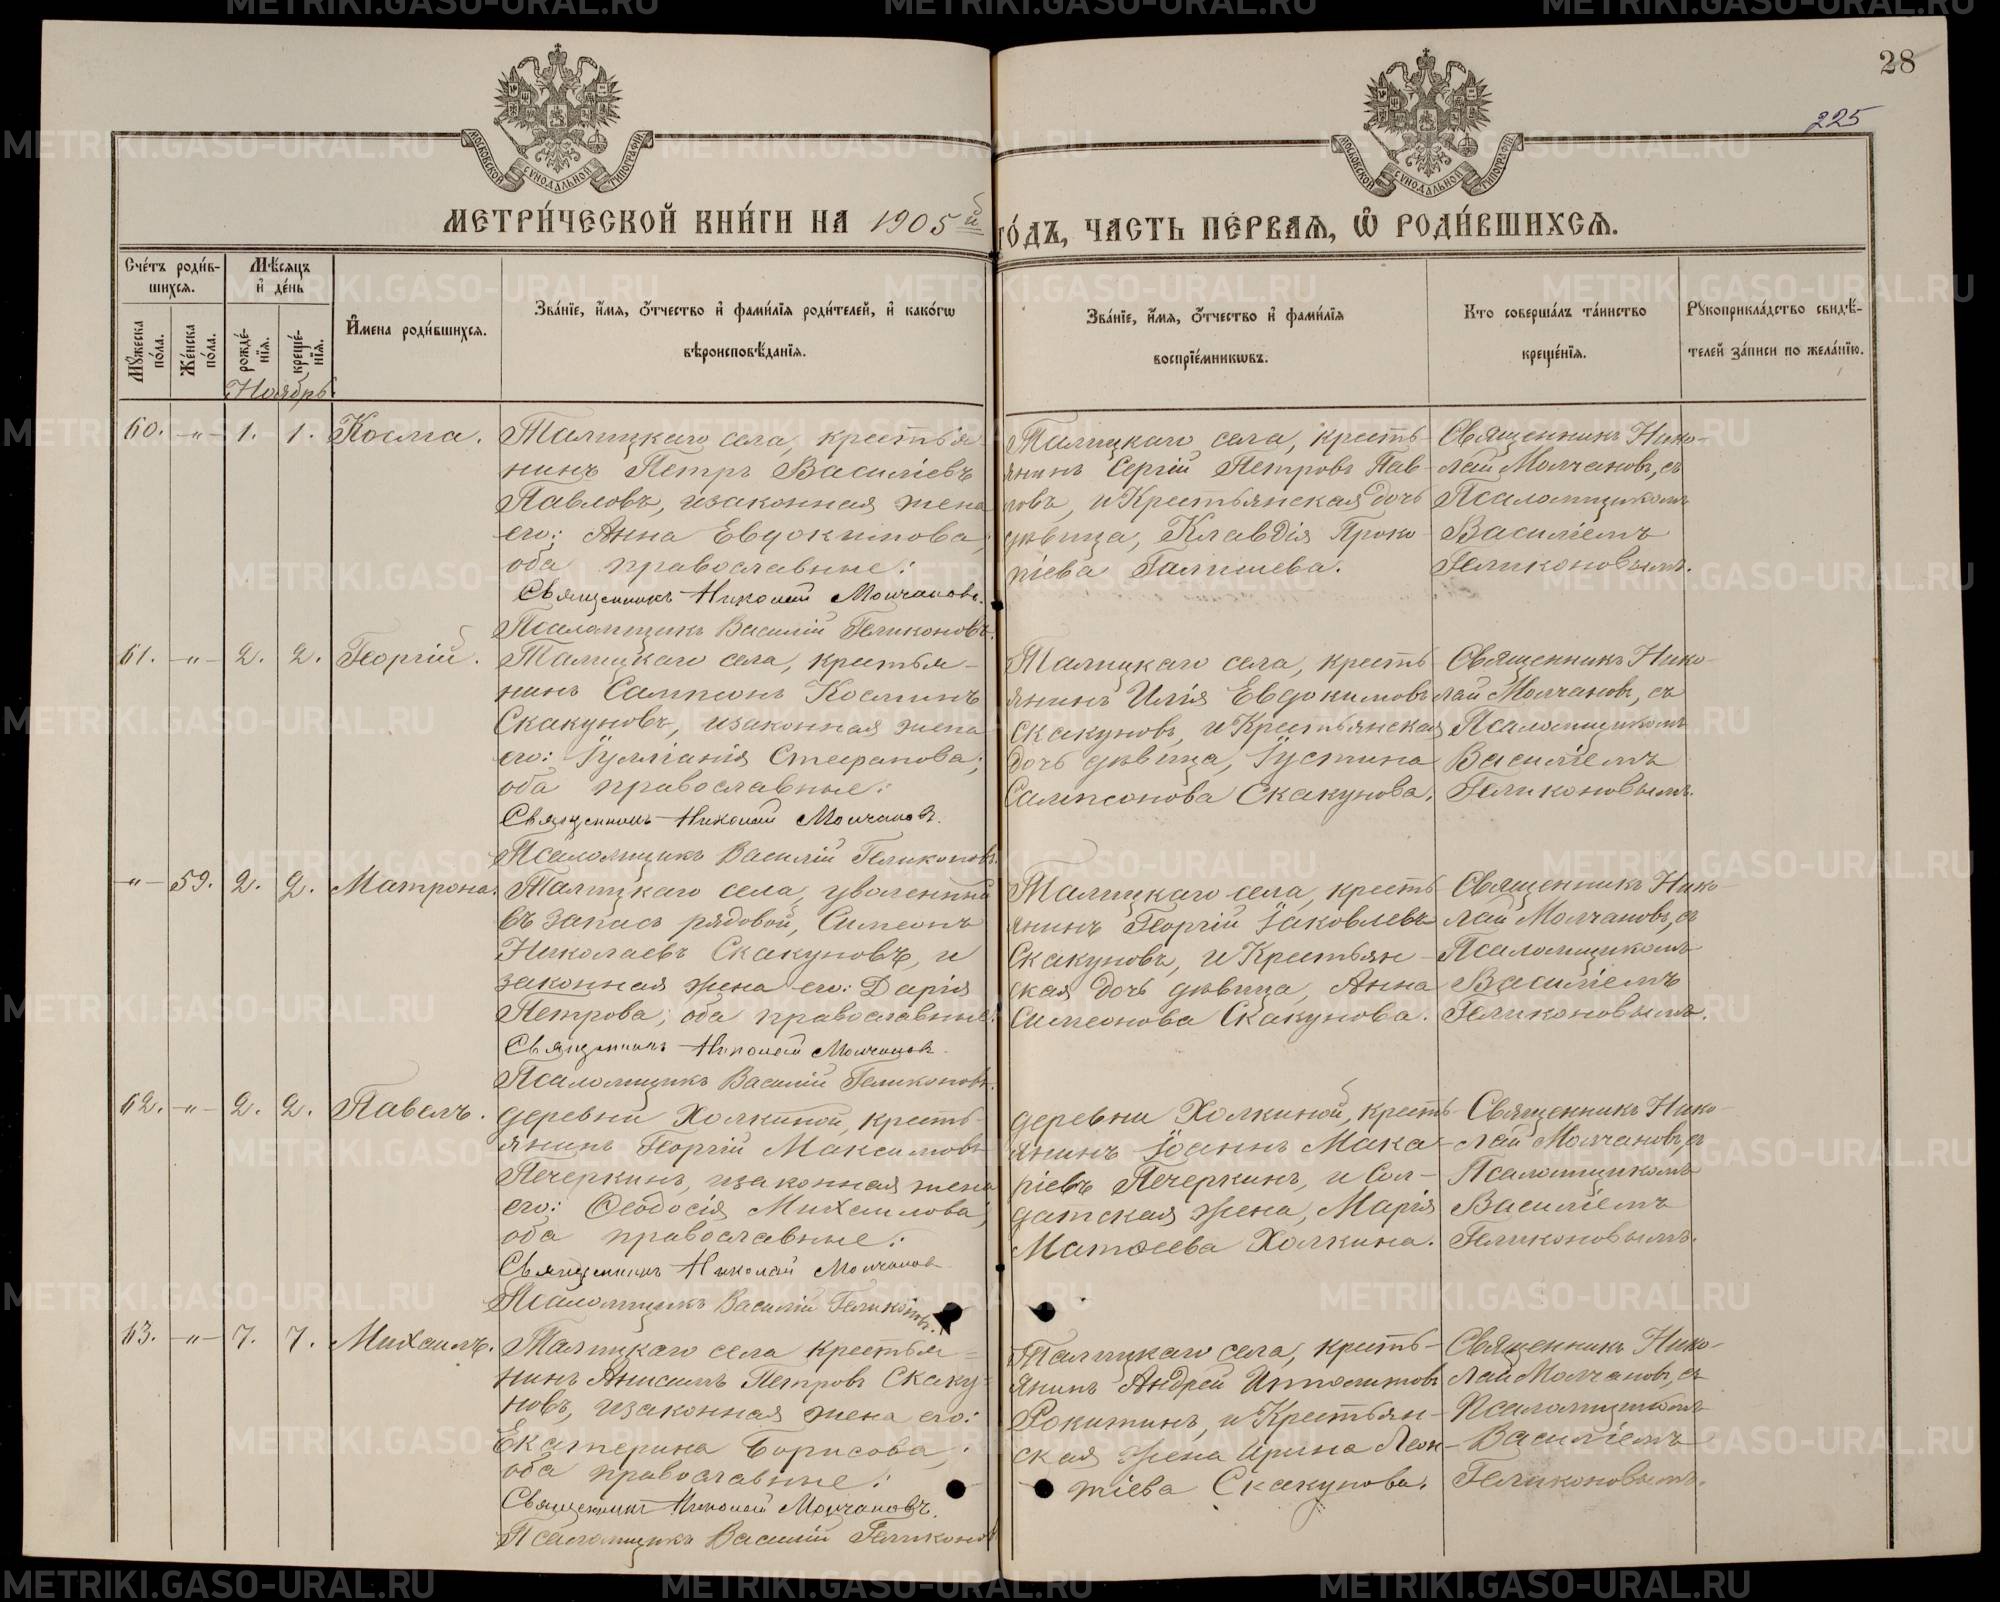 28
225
МОСКОВСКОЙ СѴНОДАЛЬНОЙ ТИПОГРАФІИ
МОСКОВСКОЙ СѴНОДАЛЬНОЙ ТИПОГРАФІИ
МЕТРИ́ЧЕСКОЙ КНИ́ГИ НА 1905й
ГО́ДЪ, ЧАСТЬ ПЕ́РВАѦ, Ѽ РОДИ́ВШИХСѦ.
Сче́тъ роди́в-
шихсѧ.
Мѣ́сѧцъ
и҆ де́нь
Мꙋ́жеска
по́ла.
Же́нска
по́ла.
рожде́-
нїѧ.
креще́-
нїѧ.
И҆́мена роди́вшихсѧ.
Зва́нїе, и҆́мѧ, ѻ҆́тчество и҆ фами́лїѧ роди́телей, и҆ како́гѡ
вѣроисповѣ́данїѧ.
Зва́нїе, и҆́мѧ, ѻ҆́тчество и҆ фами́лїѧ
воспрїе́мникѡвъ.
Кто соверша́лъ та́инство
креще́нїѧ.
Рꙋкоприкла́дство свидѣ́-
телей за́писи по жела́нїю.
Ноябрь
60. -„- 1. 1. Косма.
Талицкаго села, крестья-
нинъ Петръ Василіевъ
Павловъ, и законная жена
его: Анна Евдокимова,
оба православные:
Священникъ Николай Молчановъ.
Псаломщикъ Василій Геликоновъ.
Талицкаго села, кресть-
янинъ Сергій Петровъ Пав-
ловъ, и Крестьянская дочь
дѣвица, Клавдія Проко-
піева Галишева.
Священникъ Нико-
лай Молчановъ, съ
Псаломщикомъ
Василіемъ
Геликоновымъ.
61. -„- 2. 2. Георгій.
Талицкаго села, крестья-
нинъ Сампсонъ Косминъ
Скакуновъ, и законная жена
его: Іулліанія Стефанова;
оба православные:
Священникъ Николай Молчановъ.
Псаломщикъ Василій Геликоновъ.
Талицкаго села, кресть-
янинъ Илія Евдокимовъ
Скакуновъ, и Крестьянская
дочь дѣвица, Іустина
Сампсонова Скакунова.
Священникъ Нико-
лай Молчановъ, съ
Псаломщикомъ
Василіемъ
Геликоновымъ.
-„- 59. 2. 2. Матрона.
Талицкаго села, уволенный
въ запасъ рядовой, Симеонъ
Николаевъ Скакуновъ, и
законная жена его: Дарія
Петрова; оба православные:
Священникъ Николай Молчановъ.
Псаломщикъ Василій Геликоновъ.
Талицкаго села, кресть-
янинъ Георгій Іаковлевъ
Скакуновъ, и Крестьян-
ская дочь дѣвица, Анна
Симеонова Скакунова.
Священникъ Нико-
лай Молчановъ, съ
Псаломщикомъ
Василіемъ
Геликоновымъ.
62. -„- 2. 2. Павелъ.
деревни Холкиной, кресть-
янинъ Георгій Максимовъ
Печеркинъ, и законная жена
его: Ѳеодосія Михаилова,
оба православные:
Священникъ Николай Молчановъ
Псаломщикъ Василій Геликоновъ.
деревни Холкиной, кресть-
янинъ Іоаннъ Мака-
ріевъ Печеркинъ, и Сол-
датская жена, Марія
Матѳеева Холкина.
Священникъ Нико-
лай Молчановъ, съ
Псаломщикомъ
Василіемъ
Геликоновымъ.
63. -„- 7. 7. Михаилъ.
Талицкаго села крестья=
нинъ Анисимъ Петровъ Скаку-
новъ, и законная жена его:
Екатерина Борисова;
оба православные:
Священникъ Николай Молчановъ.
Псаломщикъ Василій Геликоновъ
Талицкаго села, кресть-
янинъ Андрей Ипполитовъ
Рокитинъ, и Крестьян-
ская жена Ирина Леон-
тіева Скакунова.
Священникъ Нико-
лай Молчановъ, съ
Псаломщикомъ
Василіемъ
Геликоновымъ.
METRIKI.GASO-URAL.RU